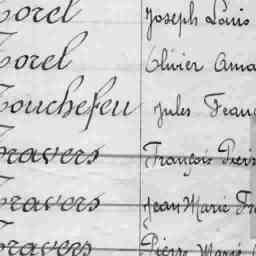 Torel Joseph Louis
Torel Olivier
Touchefeu Jules
Travers François
Travers Jean Marie
Travers Pierre Marie